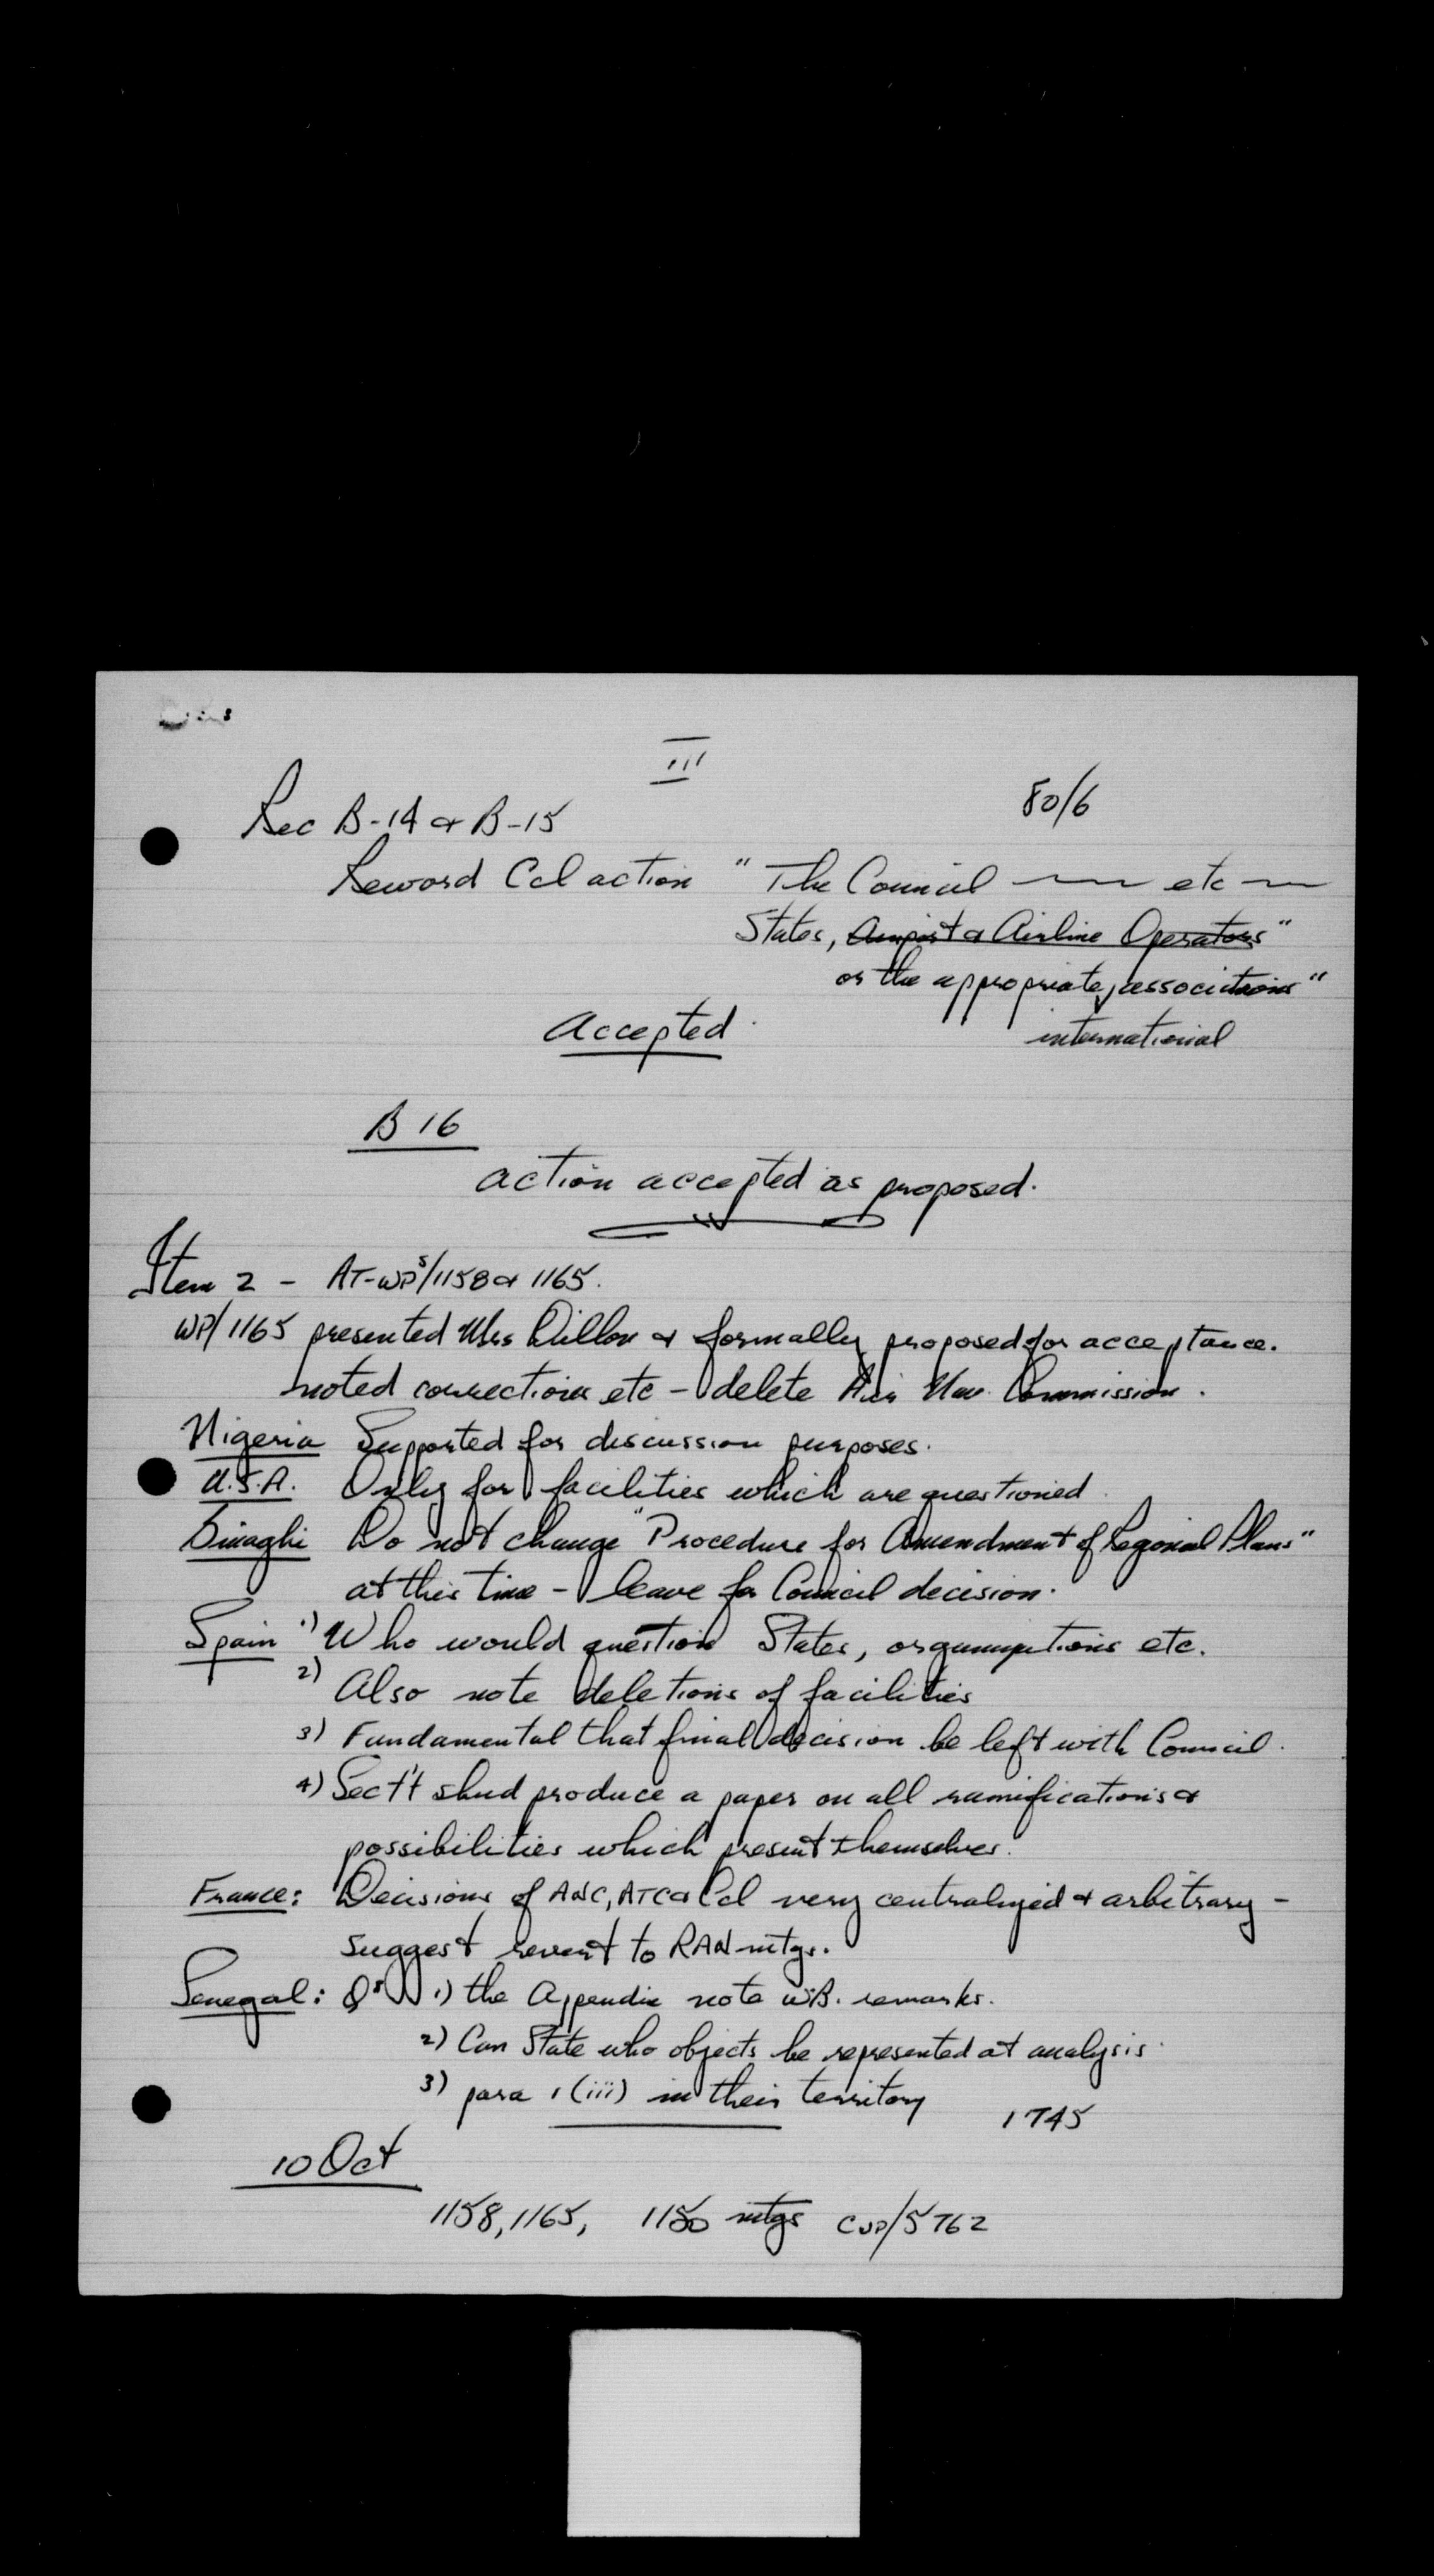 III
80/6
Rec B-14 & B-15
Reword Ccl action "The Council —— etc —
States, Airport & Airline Operators"
or the appropriate, associations"
international
Accepted.
B 16
action accepted as proposed.
Item 2 - AT-WPs/1158 & 1165.
WP/1165 presented Mrs Dillon & formally proposed for acceptance.
noted corrections etc - delete Air Nav. Commission.
Nigeria Supported for discussion purposes.
U.S.A. Only for facilities which are questioned.
Do not change "Procedure for Amendment of Regional Plans"
at this time - leave for Council decision.
Spain 1) Who would question States, organizations etc.
2) Also note deletions of facilities
3) Fundamental that final decision be left with Council.
4) Sec't't shud produce a paper on all ramifications &
possibilities which present themselves.
France: Decisions of ANC, ATC & Ccl very centralyzed & arbitrary -
suggest revert to RAN mtgs.
Senegal: Qs 1) the Appendix note remarks.
2) Can State who objects be represented at analysis.
3) para 1 (iii) in their territory
1745
10 Oct
1158, 1165, 1150 mtgs CWP/5762